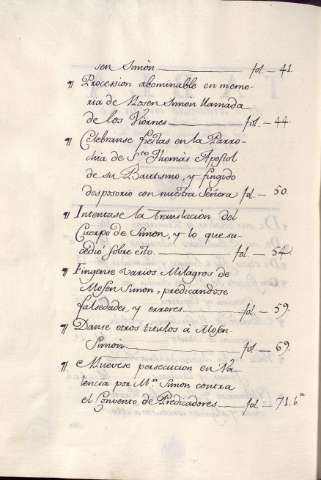 sen Simòn fol — 41.
¶ Procession abominable en memo-
ria de Mosen Simòn llamada
de los Viernes fol — 44.
¶ Celebranse fiestas en la Parro-
chia de S.to Thomàs Apostol
de su Bautismo, y fingido
desposorio con nuestra Señora fol — 50.
¶ Intentase la translacion del
Cuerpo de Simon, y lo que su-
cediò sobre esto. fol — 54.
¶ Fingense varios Milagros de
Mosen Simon, predicandose
falsedades, y errores. fol — 59.
¶ Danse otros titulos à Mosen
Simòn fol — 69.
¶ Mueves persecucion en Va-
lencia por M.n Simon contra
el Convento de Predicadores fol — 71.b.ta